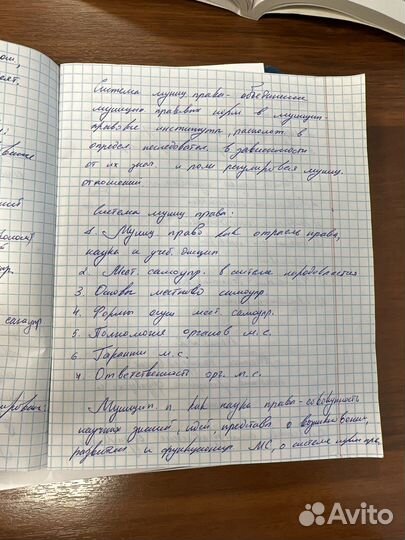 Система муниц права - объединение
муницип правовых норм в муницип.
правовые институты, располож. в
определ. последоват. в зависимости
от их знач и роли регулировании муниц.
отношений
Система муниц права:
1. Муниц право как отрасль права,
наука и учеб. дисцип.
2. Мест. самоупр. в системе народовластия
3. Основы местного самоупр
4. Формы осущ мест. самоупр.
5. Полномочия органов м.с.
6. Гарантии м.с.
7. Ответственность орг. м.с.
Муницип. п. как наука права - совокупность
научных знаний, идей, представл о возникновении,
развитии и функционир МС, о системе норм
Avito